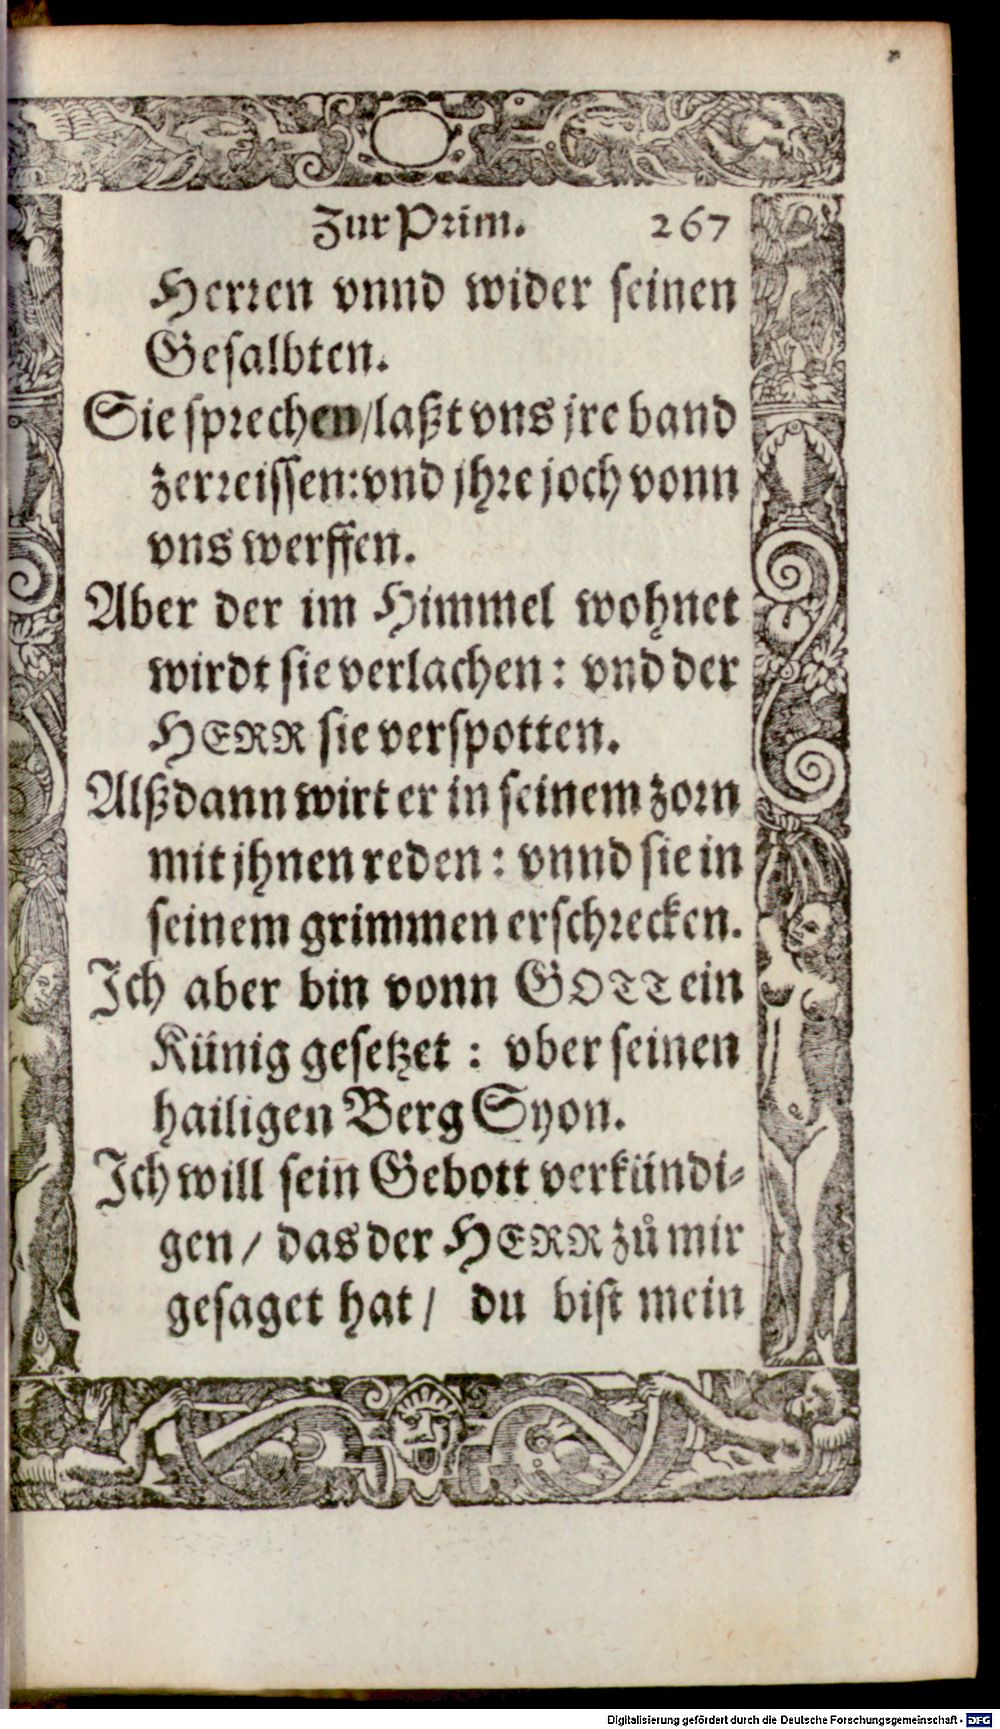 Zur Prim. 267
Herren vnnd wider seinen
Gesalbten.
Sie sprechen/laßt vns jre band
zerreissen:vnd jhre joch vonn
vns werffen.
Aber der im Himmel wohnet
wirdt sie verlachen: vnd der
HERR sie verspotten.
Alßdann wirt er in seinem zorn
mit jhnen reden: vnnd sie in
seinem grimmen erschrecken.
Ich aber bin vonn GOTT ein
Künig gesetzet: vber seinen
hailigen Berg Syon.
Ich will sein Gebott verkündi-
gen/ das der HERR zů mir
gesaget hat/ du bist mein
Digitalisierung gefördert durch die Deutsche Forschungsgemeinschaft - DFG